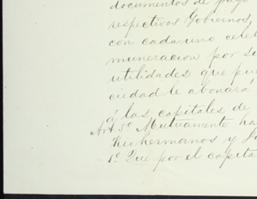 documentos de pago
respectivos Gobiernos
con cada uno celeb
muneracion por su
utilidades que pu
ciedad le abonará
á las capitales de
Art. 5º Mutuamente ha
hermanos y
1º Que por el capita